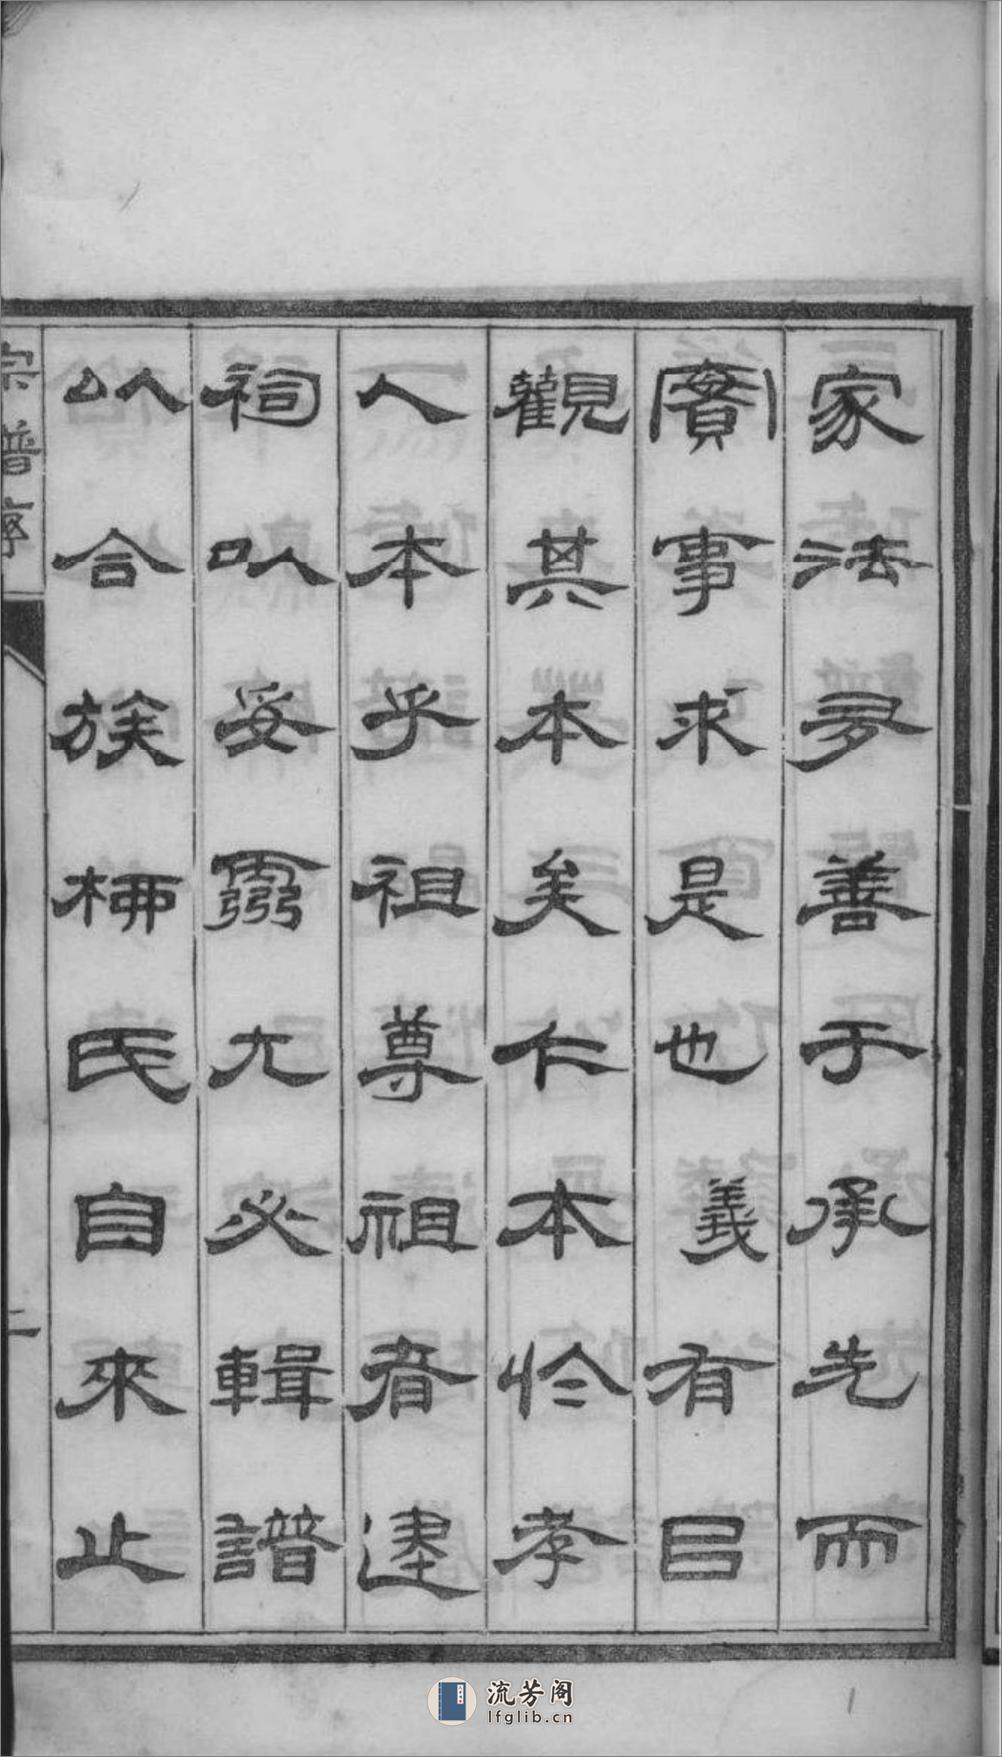 家法多善于承先而
實事求是也義有㠯
觀其本矣仁本於孝
人本乎祖尊祖者建
祠以妥靈尤必輯譜
以合族柳氏自來止
宗譜序
二
流芳阁
lfglib.cn